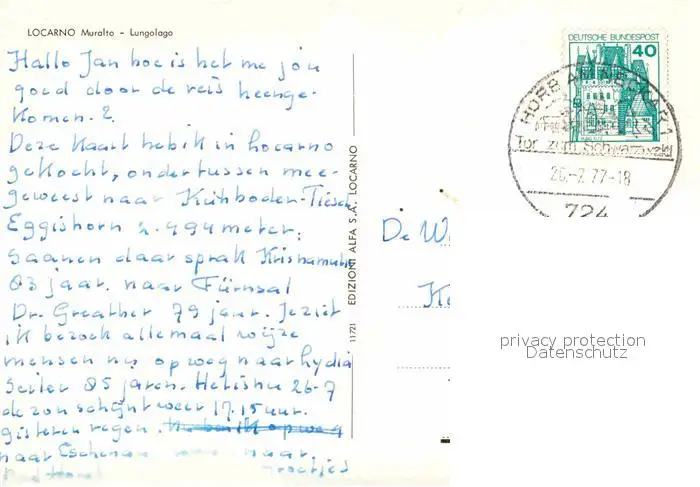 LOCARNO Muralto - Lungolago
Hallo Jan hoe is het me jou
goed door de reis heenge-
komen. ?
Deze Kaart heb ik in Locarno
gekocht, ondertussen mee-
geweest naar Kühboden-Fiesch
Eggishorn 2.494 meter;
Saanen daar sprak Krishnamurti
83 jaar. naar
Dr. 79 jaar. Je ziet
ik bezoek allemaal wijze
mensen nu op weg naar hydia
Seiler 85 jaren. Het is nu 26-7
de zon schijnt weer 17.15 uur.
gisteren regen.
naar naar.
Groetjes
EDIZIONI ALFA S.A. LOCARNO
11721
DEUTSCHE BUNDESPOST
40
HORB AM NECKAR 1
Tor zum Schwarzwald
26.-7.77-18
724
De W
privacy protection
Datenschutz